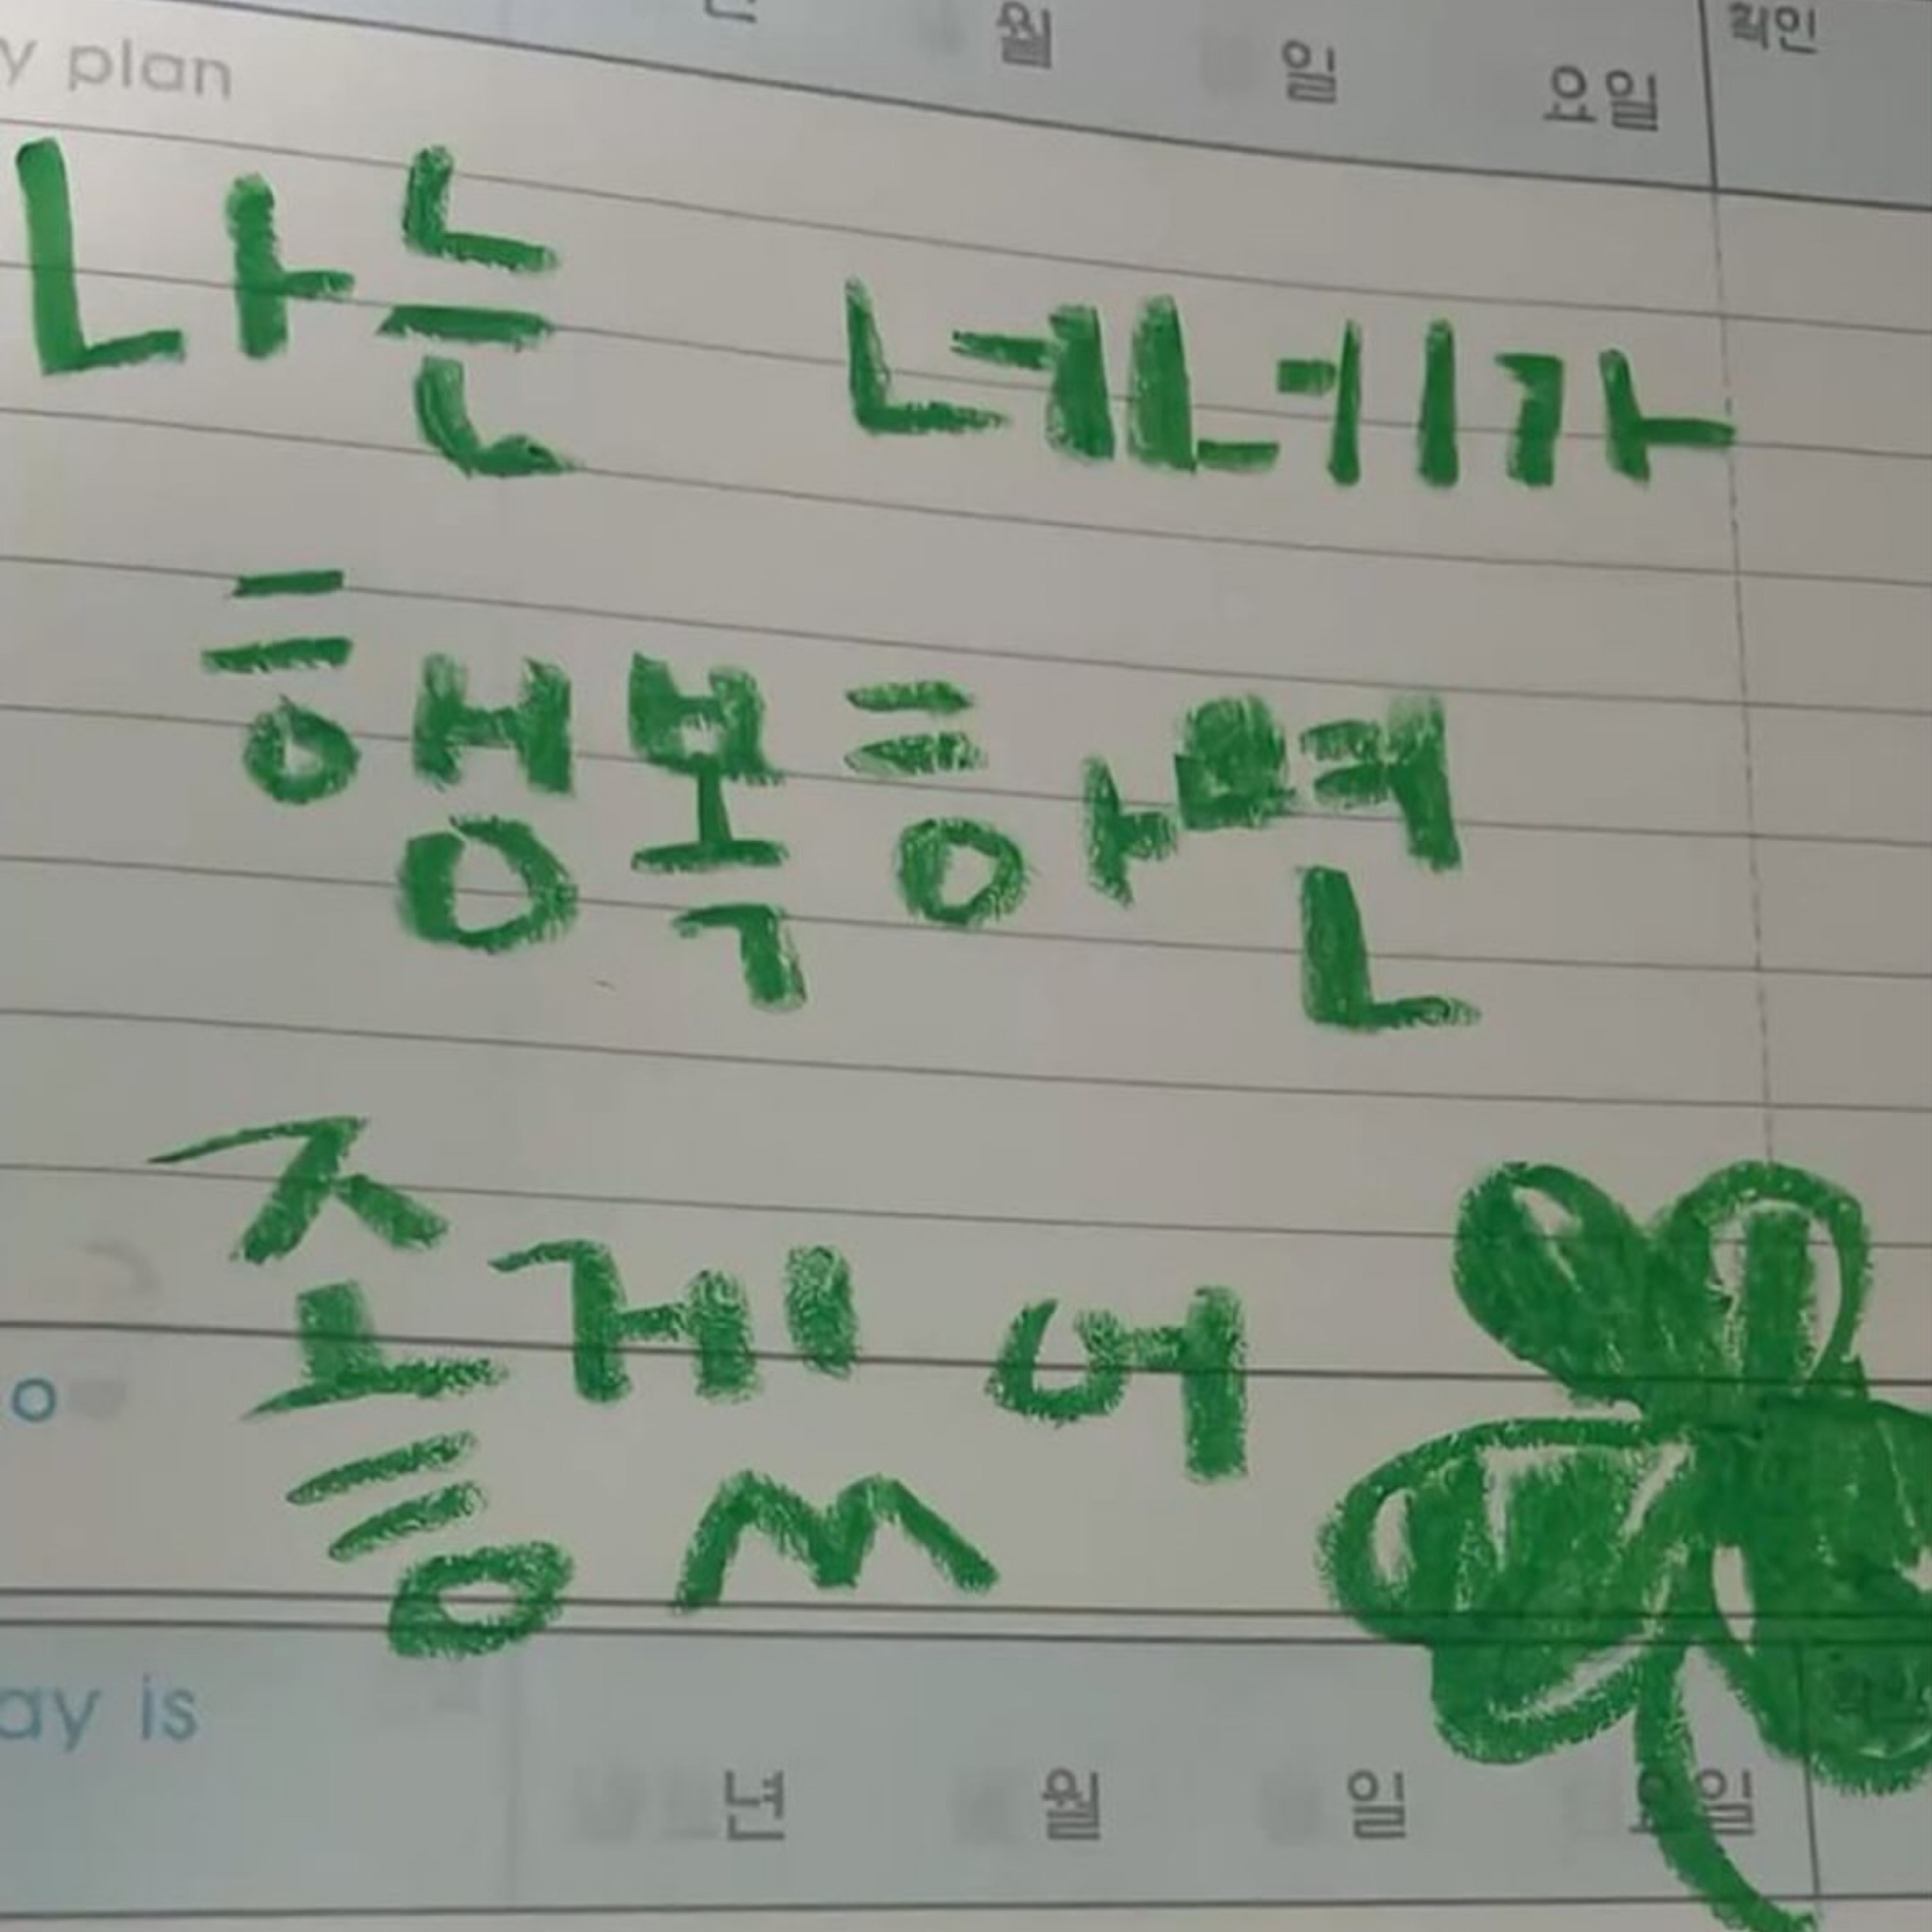 월 일 요일 확인
y plan
나는 네네가
행복하면
좋겠어
o
ay is
년 월 일 요일